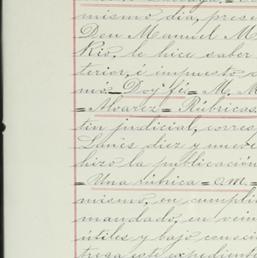 mismo dia, prese
Don Manuel M.
Rio, le hice saber
terior, é impuesto
mó = Doy fé = M. M.
= Alvarez = Rúbricas
tin judicial, corres
Lunes diez y nueve
hizo la publicación
= Una rúbrica = a.m. =
mismo, en cumpli
mandado, en vein
útiles y bajo conoci
trega este expediente